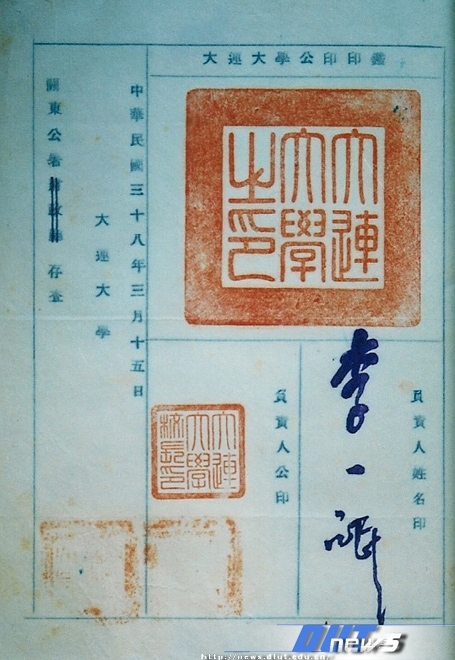 大連大學公印印鑑
大連
大學
之印
負責人姓名印
李一氓
負責人公印
大連
大學
校長印
中華民國三十八年三月十五日
大連大學
關東公署 存查
DLUT news
http://news.dlut.edu.cn/